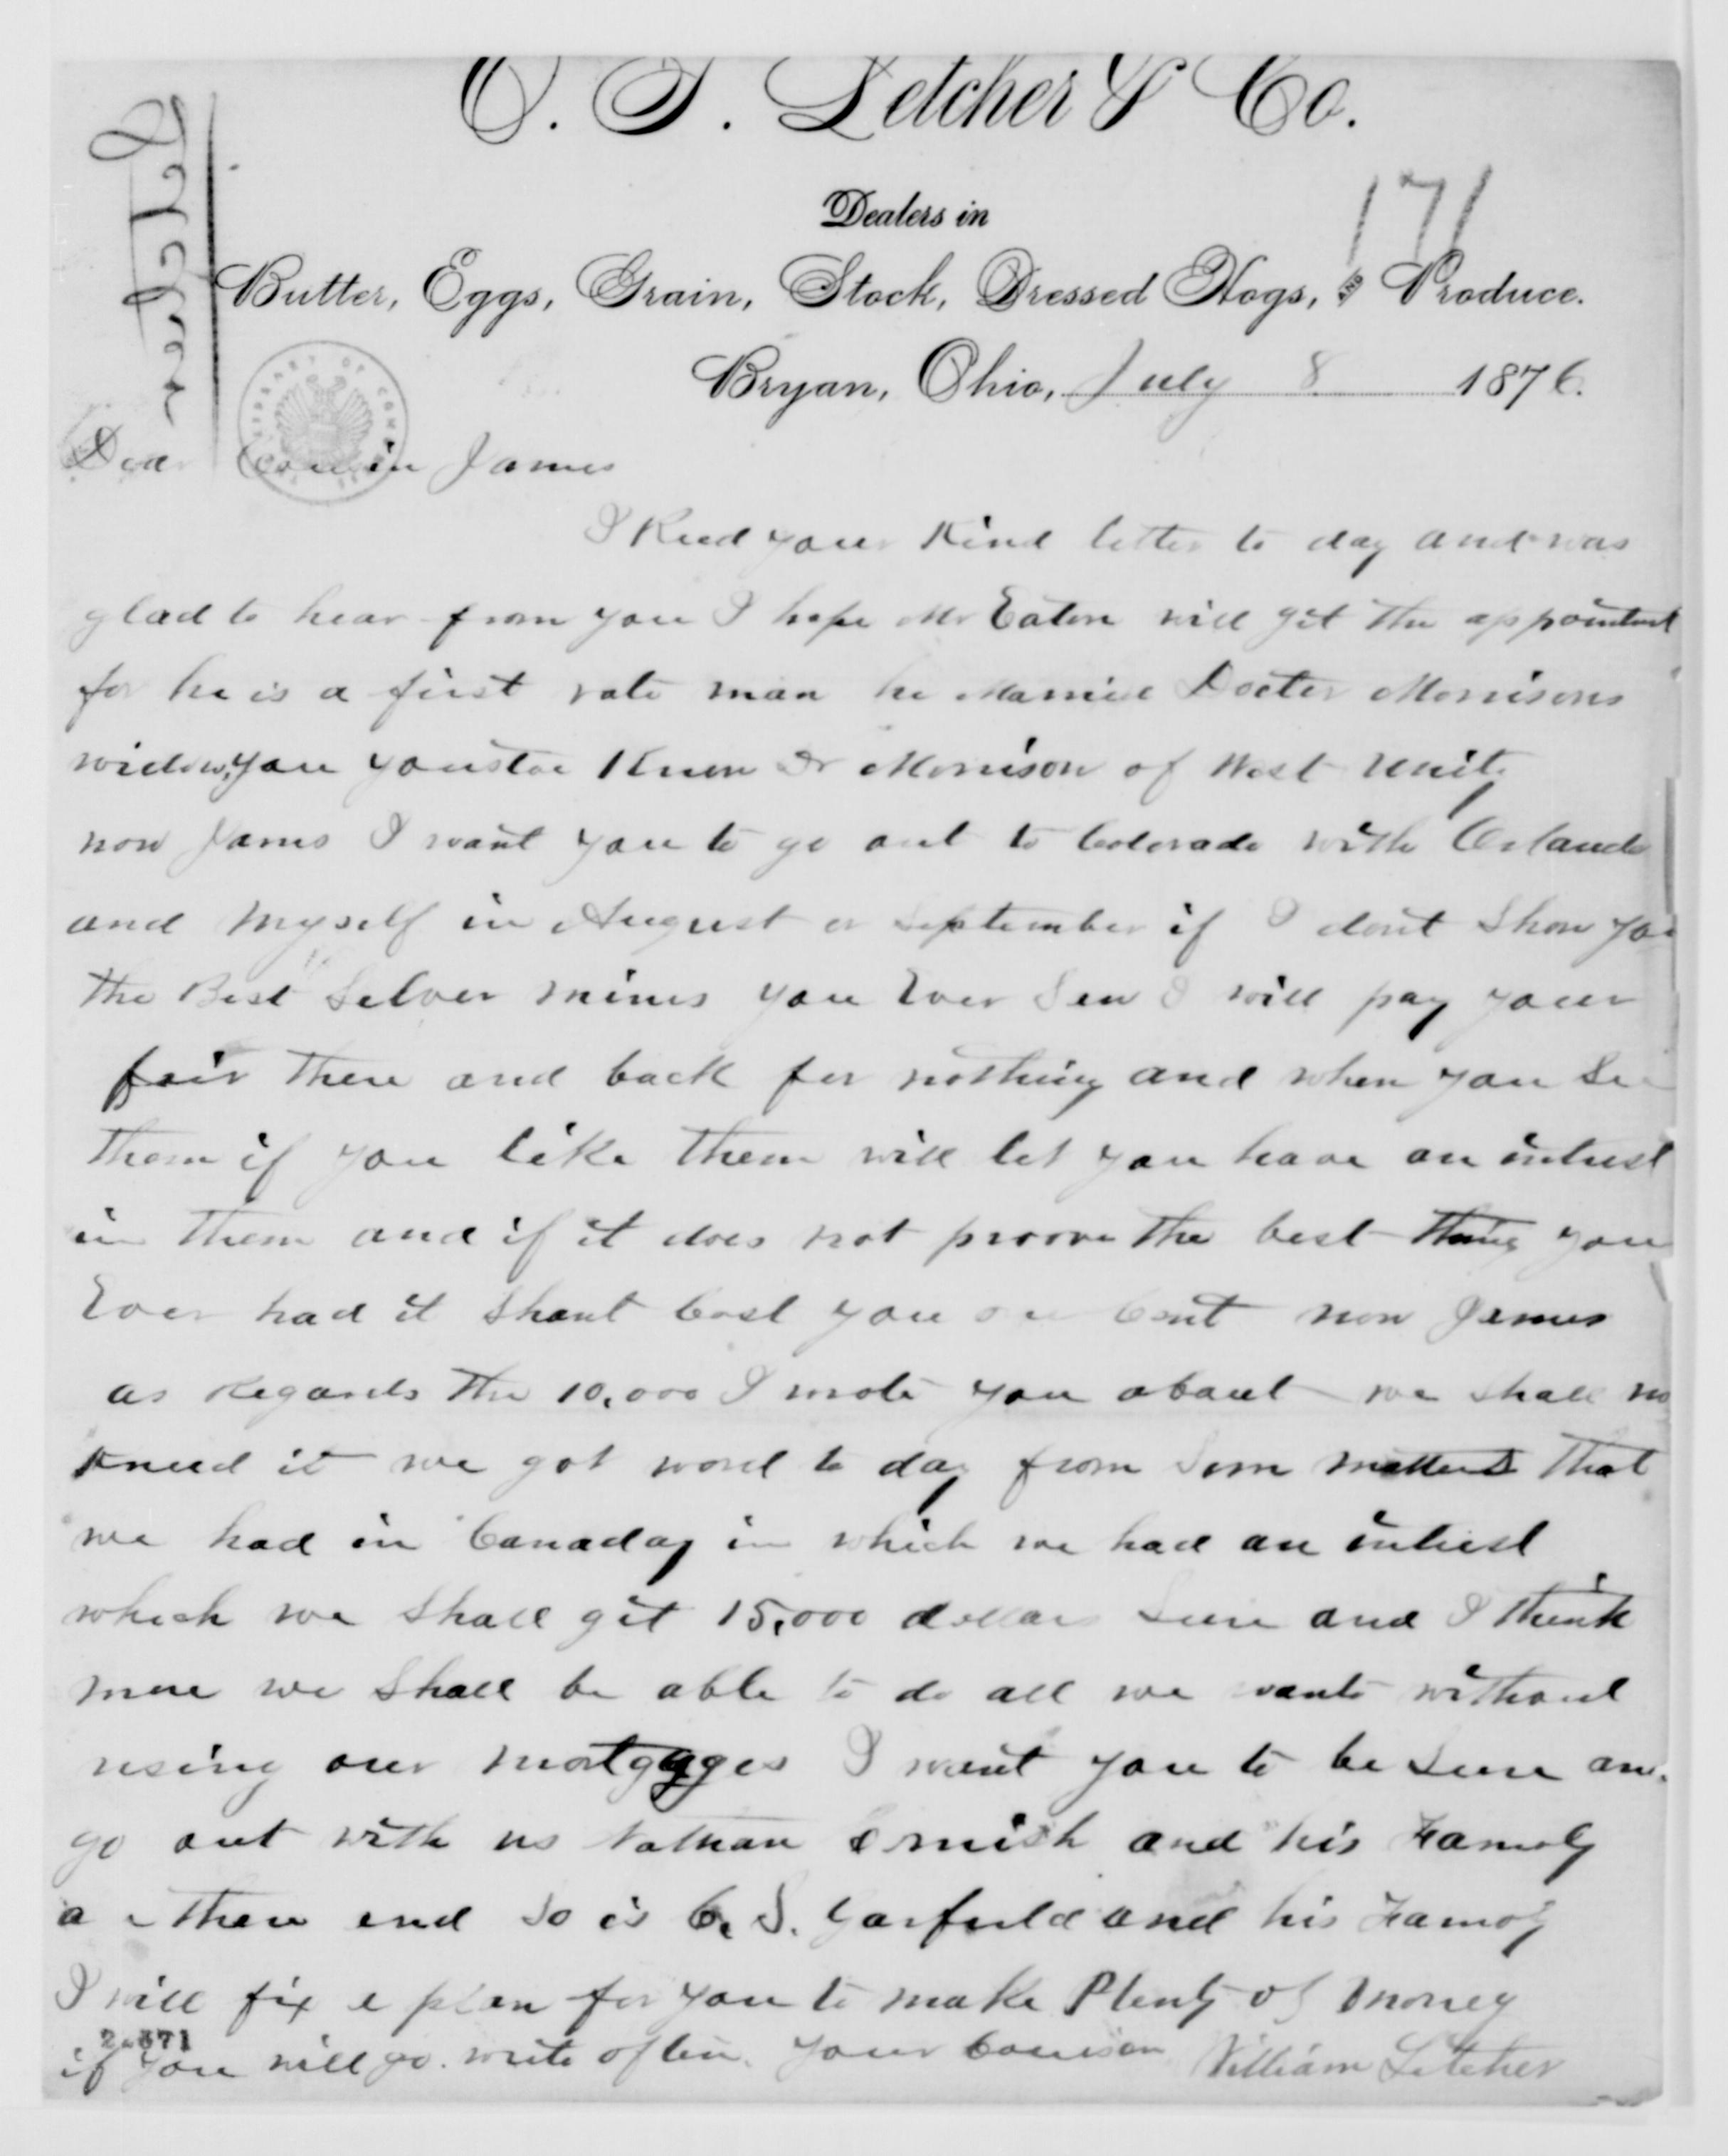 O. T. Letcher & Co.
Dealers in
Butter, Eggs, Grain, Stock, Dressed Hogs, AND Produce.
171
Bryan, Ohio, July 8 1876.
Dear Cousin James
I Recd your Kind letter to day and was
glad to hear from you I hope Mr Eaton will git the appointmt
for he is a first rate man he Married Docter Morrisons
widow, you youstoe Know Dr Morrison of West Unity
now Jams I want you to go out to Colorado with Orlando
and Myself in August or September if I dont Show you
the Best Silver mines you Ever Sen I will pay your
fair there and back for nothing and when you See
them if you like them will let you have an intrest
in them and if it does not proove the best thing you
Ever had it Shant Cost you one Cent now James
as Regards the 10,000 I wrote you about we Shall no
kneed it we got word to day from Som matters that
we had in Canaday in which we had an intrest
which we Shall git 15,000 dollars Sure and I think
more we Shall be able to do all we wants without
using our mortgages I want you to be Sure and
go out with us Nathan and his Famoly
are there and So is C. S. Garfield and his Famoly
I will fix a plan for you to make Plenty of money
if you will go. write often. Your Couisen William Letcher